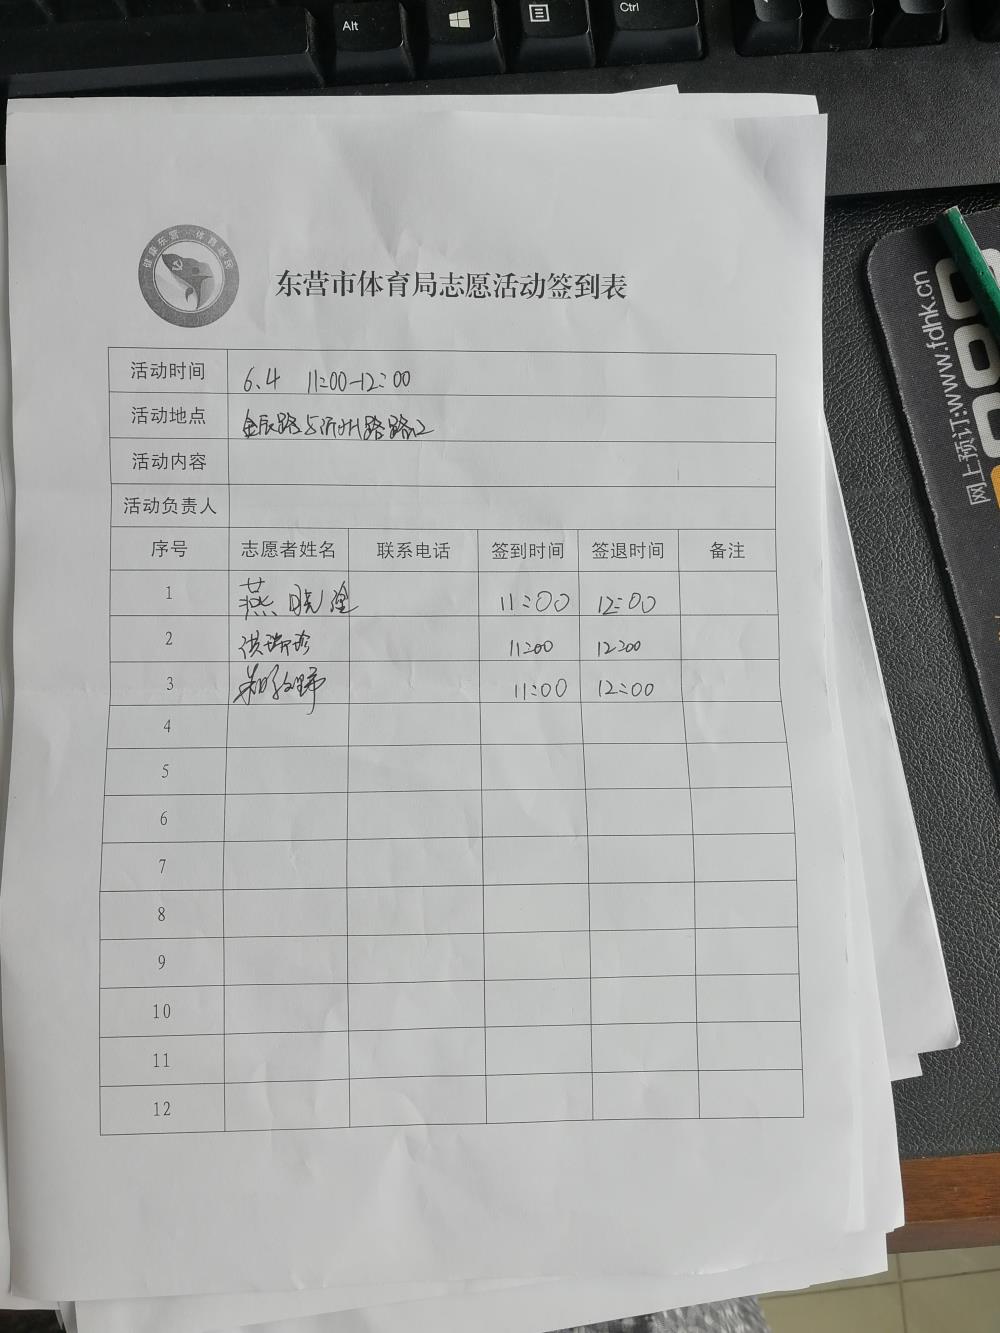 Alt
Ctrl
健康东营 体育惠民
东营市体育局志愿活动签到表
活动时间 6.4 11:00-12:00
活动地点 金辰路与沂州路路口
活动内容
活动负责人
序号 志愿者姓名 联系电话 签到时间 签退时间 备注
1 燕晓 11:00 12:00
2 洪瑞珍 11:00 12:00
3 11:00 12:00
4
5
6
7
8
9
10
11
12
网上预订:www.fdhk.cn